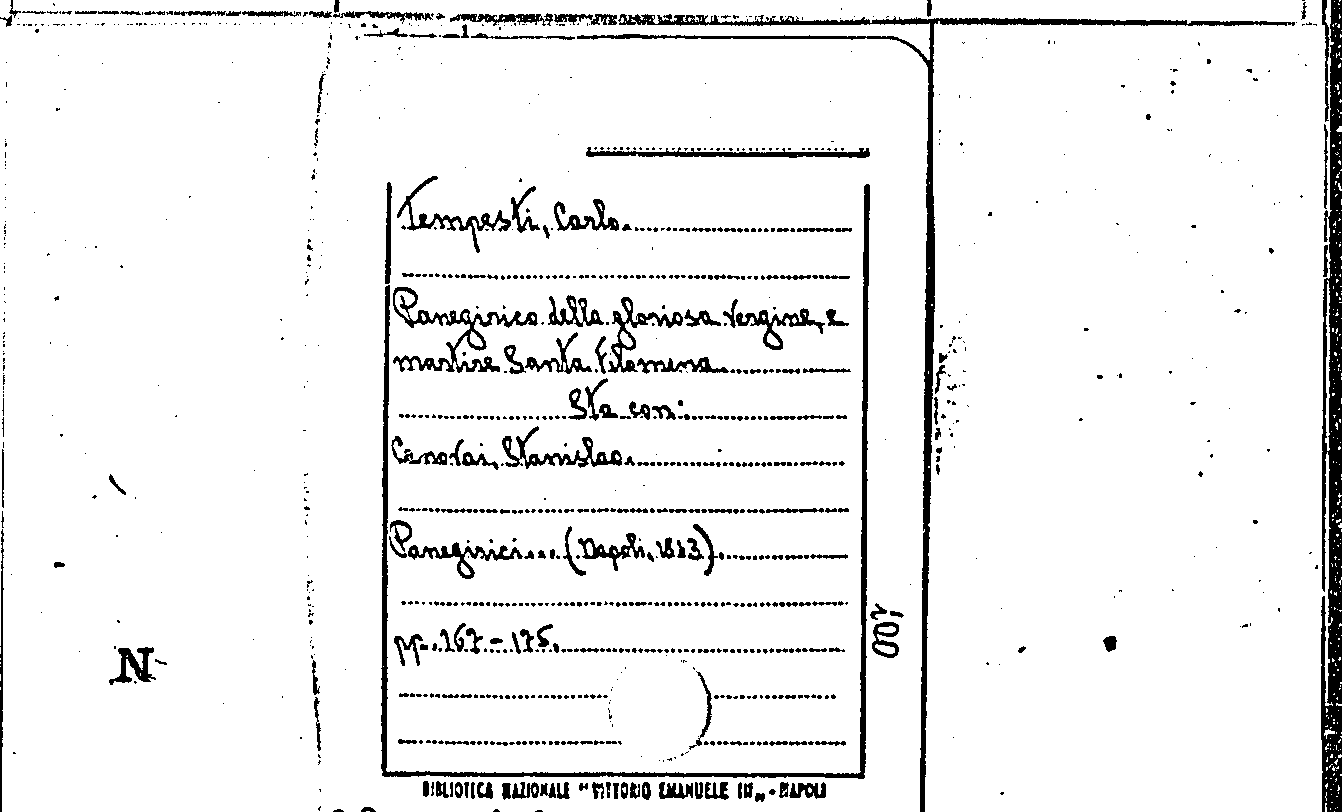 Tempesti, Carlo.
Panegirico della gloriosa Vergine, e
martire Santa Filomena.
Sta con:
Canovai, Stanislao.
Panegirici... (Napoli, 1883).
pp. 167-175.
N
BIBLIOTECA NAZIONALE "VITTORIO EMANUELE III„ - NAPOLI